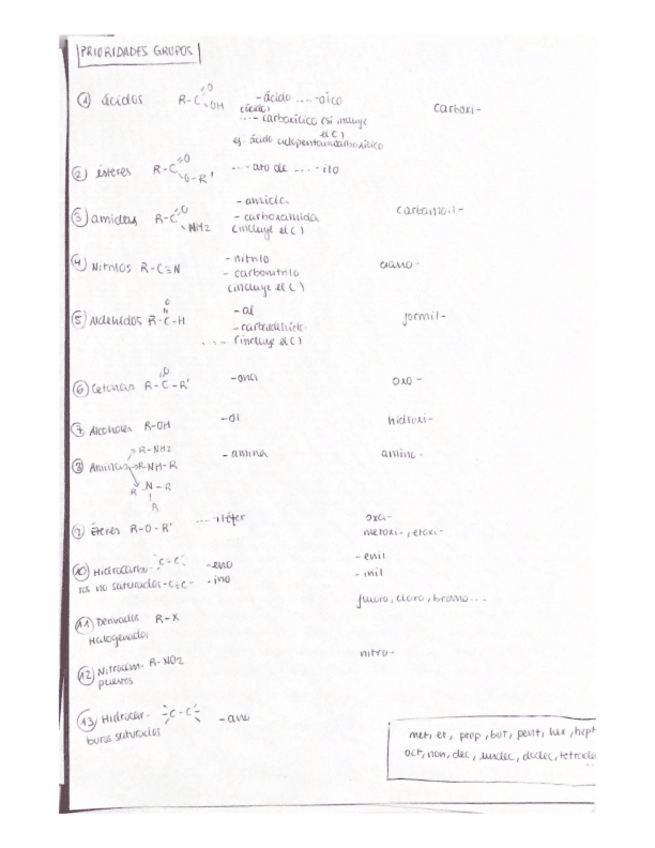 PRIORIDADES GRUPOS
① ácidos R-C O OH -ácido ....-oico carboxi-
....- carboxílico (si incluye
el C)
ej: ácido ciclopentanocarboxílico
② ésteres R-C O O-R' ....-ato de ....-ilo
③ amidas R-C O NH2 -amida carbamoil-
-carboxamida
(incluye el C)
④ Nitrilos R-C≡N -nitrilo ciano-
-carbonitrilo
(incluye el C)
⑤ Aldehídos R-C-H O -al formil-
-carbaldehido
.... (incluye el C)
⑥ Cetonas R-C-R' O -ona oxo-
⑦ Alcoholes R-OH -ol hidroxi-
⑧ Aminas R-NH2 -amina amino-
R-NH-R
R N-R
R
⑨ Éteres R-O-R' ....iléter oxa-
metoxi-, etoxi-
⑩ Hidrocarbu- C=C -eno -enil
ros no saturados -C≡C- -ino -inil
fluoro, cloro, bromo...
⑪ Derivados R-X
Halogenados
⑫ Nitrocom- R-NO2 nitro-
puestos
⑬ Hidrocar- C-C -ano
buros saturados
met, et, prop, but, pent, hex, hept
oct, non, dec, undec, dodec, tetradec